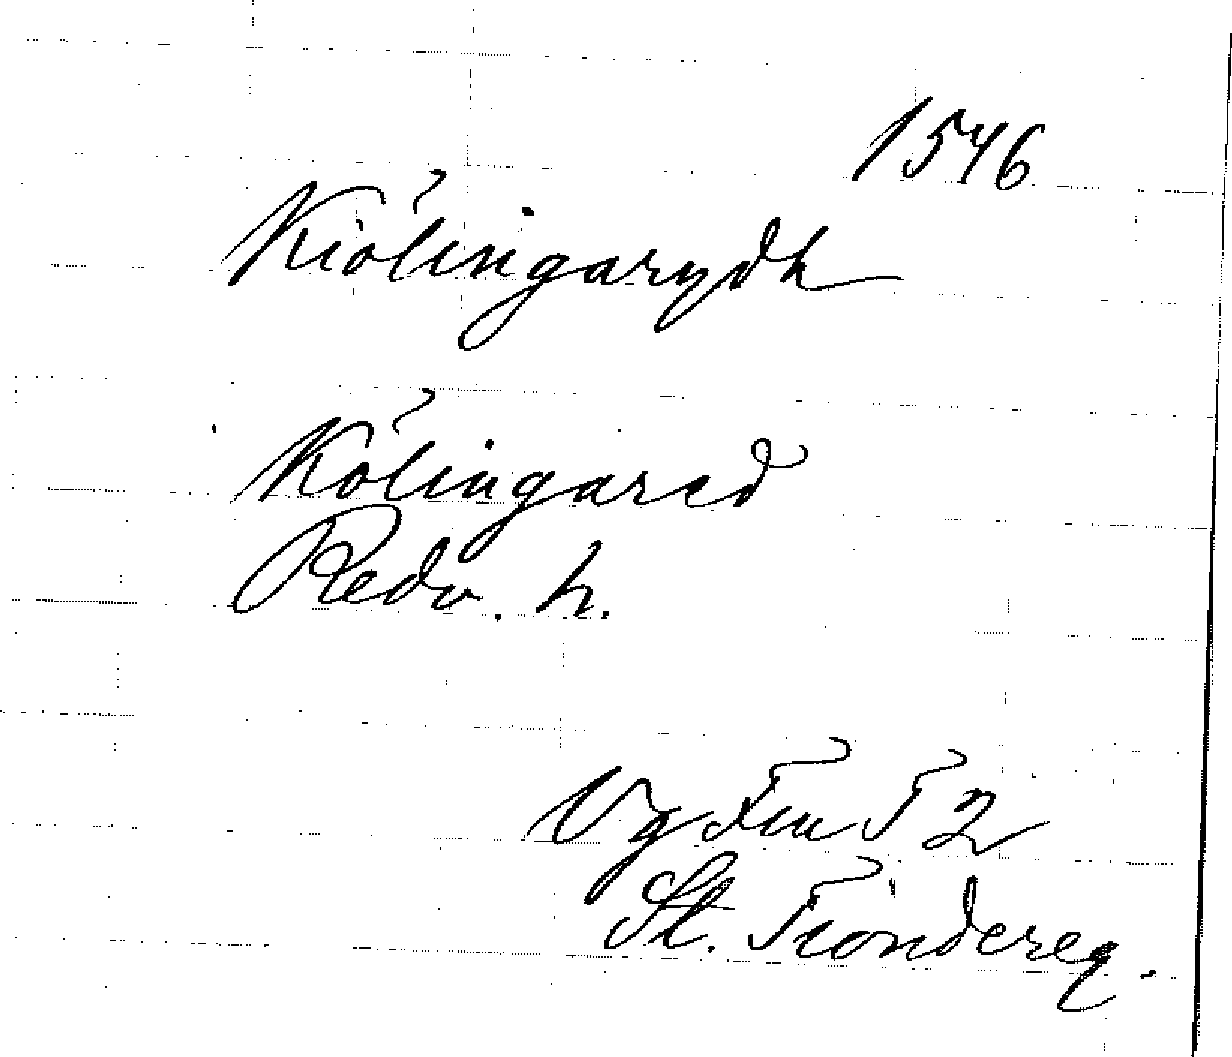 1546
Kiölingarydh
Kölingared
Redv. h.
Vg Fru 52
St. Tiondereg.